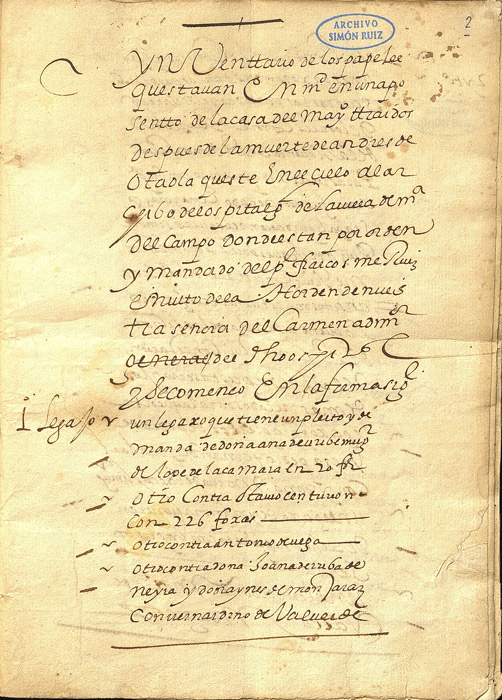 ARCHIVO
SIMÓN RUIZ
2
Ynventtario de los papeles
questavan En m^a en un apo
sentto de la casa del may^o ttraidos
despues de la muerte de andres de
Otaola queste En el cielo al ar
chibo del ospital g^l de la villa de m^a
del Campo donde estan por orden
y mandado del p^e frai cosme Ruiz
de la Horden de nues
tra señora del Carmen adm^or
del dho ospi^al
y Se comenco En la forma sig^e
1 Legajo
un legaxo que tiene un pleito y de
manda de doña ana de uribe mug^r
de lope de la camara En 20 fx^s
Otro Contra otavio centurion
Con 226 foxas
Otro contra antonio de vega
Otro contra dona Joana de riba de
neyra y doña ynes de mon
Con vernardino de Valverde